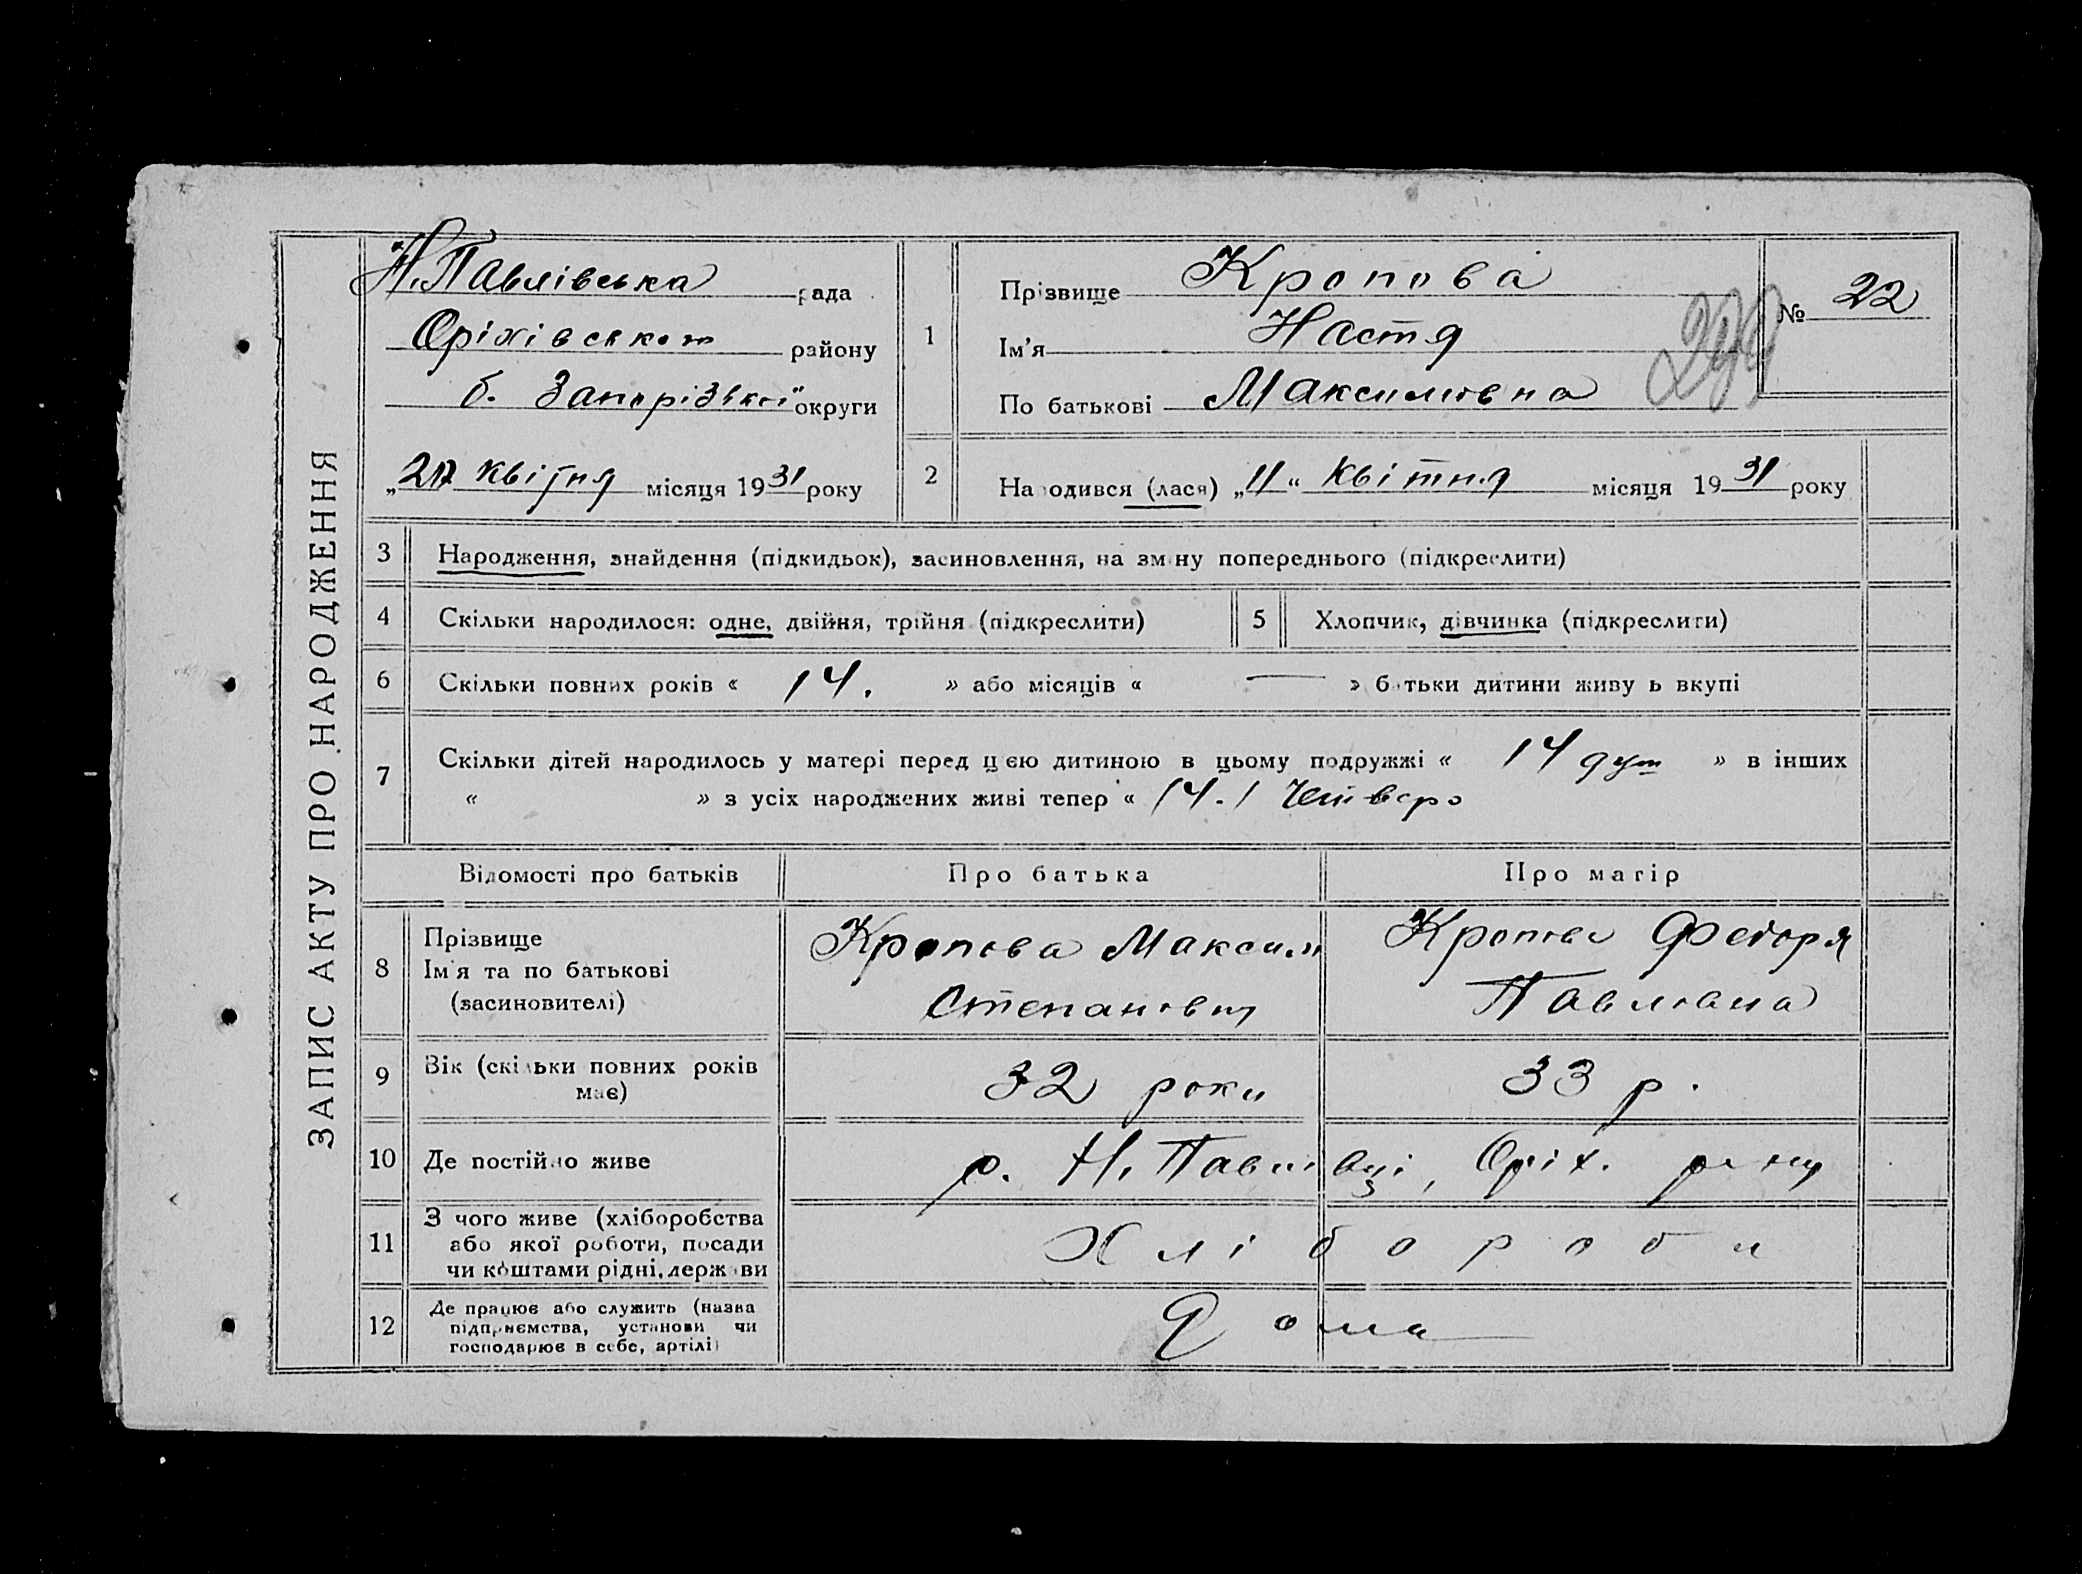 ЗАПИС АКТУ ПРО НАРОДЖЕННЯ
Н. Павлівська рада
Оріхівського району
б. Запорізької округи
„27 квітня місяця 1931 року
1
Прізвище Кропова
Ім'я Настя
По батькові Максимовна
№ 22
299
2
Народився (лася) „11“ квітня місяця 1931 року
3 Народження, знайдення (підкидьок), засиновлення, на зміну попереднього (підкреслити)
4 Скільки народилося: одне, двійня, трійня (підкреслити)
5 Хлопчик, дівчинка (підкреслити)
6 Скільки повних років « 14. » або місяців « — » батьки дитини живуть вкупі
7 Скільки дітей народилось у матері перед цією дитиною в цьому подружжі « 14 душ » в інших
« » з усіх народжених живі тепер « 14.1 Четверо
Відомості про батьків Про батька Про матір
8 Прізвище
Ім'я та по батькові
(засиновителі)
Кропова Максим
Степанович
Кропова Федоря
Павловна
9 Вік (скільки повних років
має)
32 роки
33 р.
10 Де постійно живе
р. Н. Павлівці, Оріх. р-ну
11 З чого живе (хліборобства
або якої роботи, посади
чи коштами рідні, держави
Хлібороби
12 Де працює або служить (назва
підприємства, установи чи
господарює в себе, артілі)
Дома